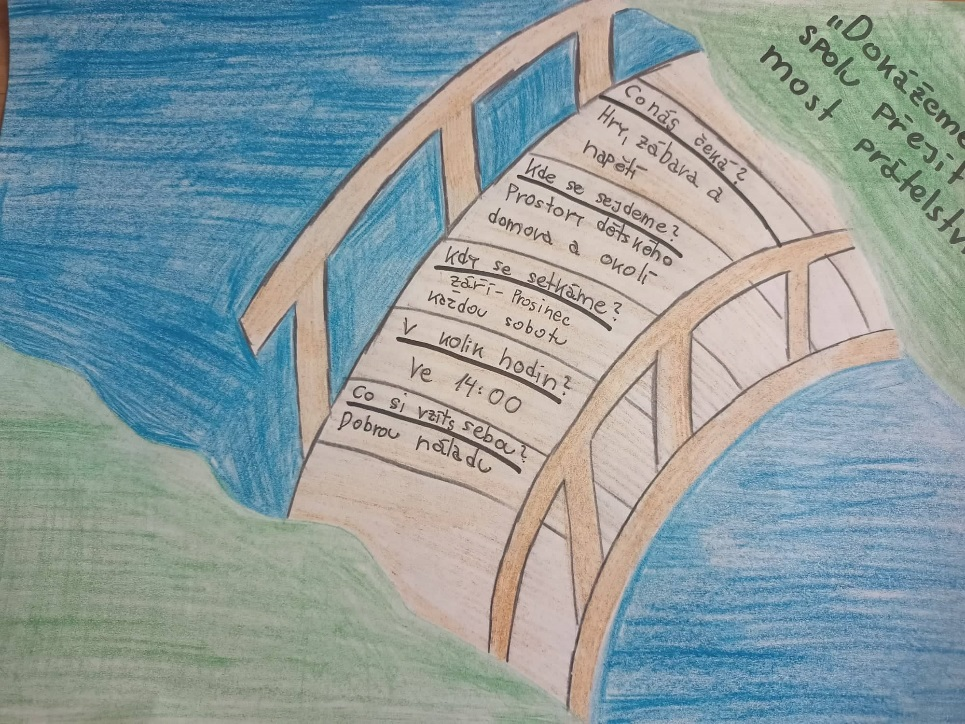 „Dokážeme
spolu přejít
most přátelství
Co nás čeká?
Hry, zábava a
napětí
Kde se sejdeme?
Prostory dětského
domova a okolí
Kdy se setkáme?
září - Prosinec
každou sobotu
V kolik hodin?
Ve 14:00
Co si vzít s sebou?
Dobrou náladu